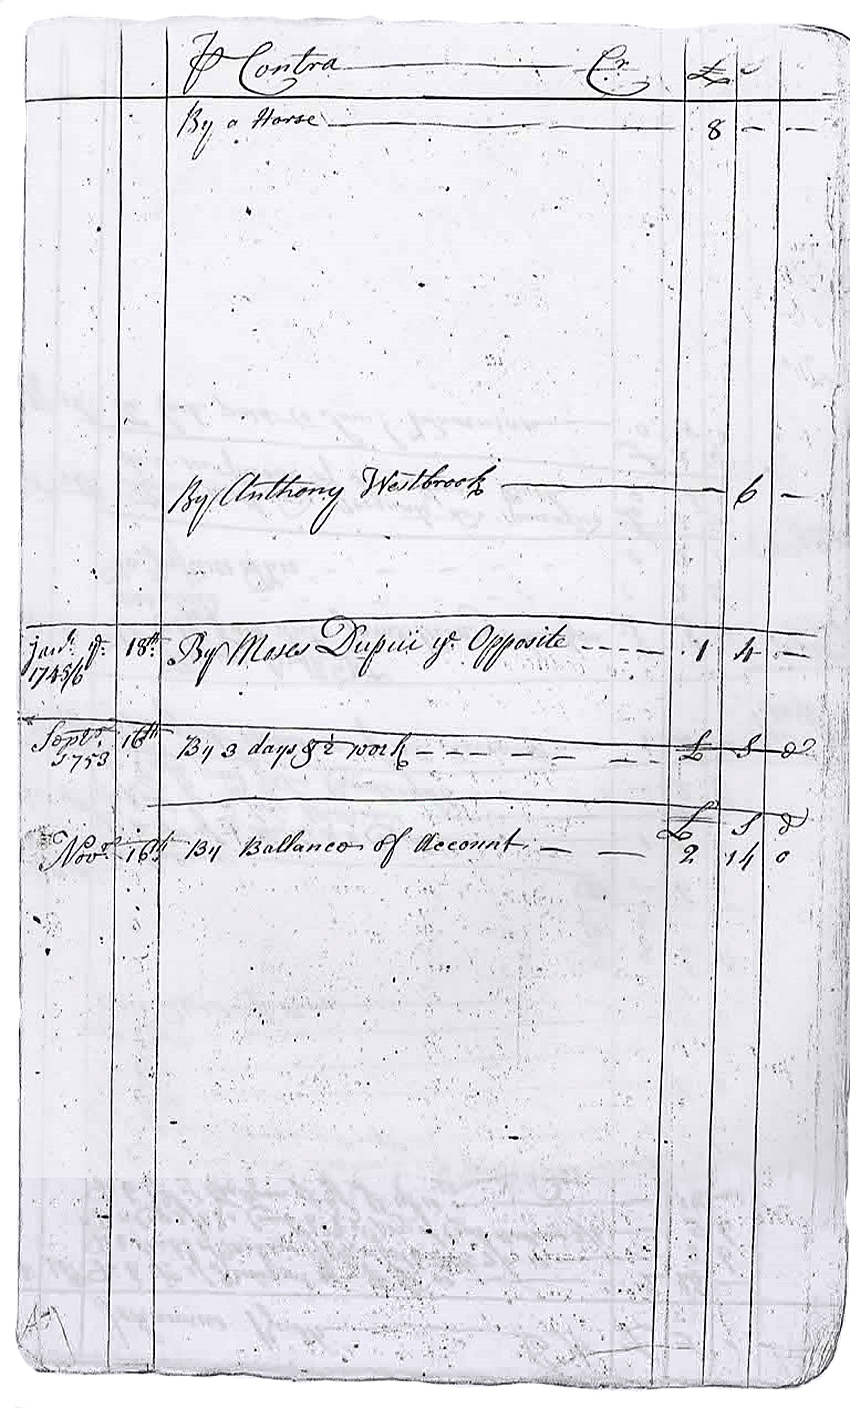 ₽ Contra Cr. £
By a Horse 8 - -
By Anthony Westbrook 6 -
Jan. ye. 18th. By Moses Dupui ye. Opposite - - - - 1 4 -
1745/6
Septr. 16th By 3 days & ½ work - - - - - - £ S d
1753
£ S d
Novr. 16th By Ballance of Account - - - 2 14 0